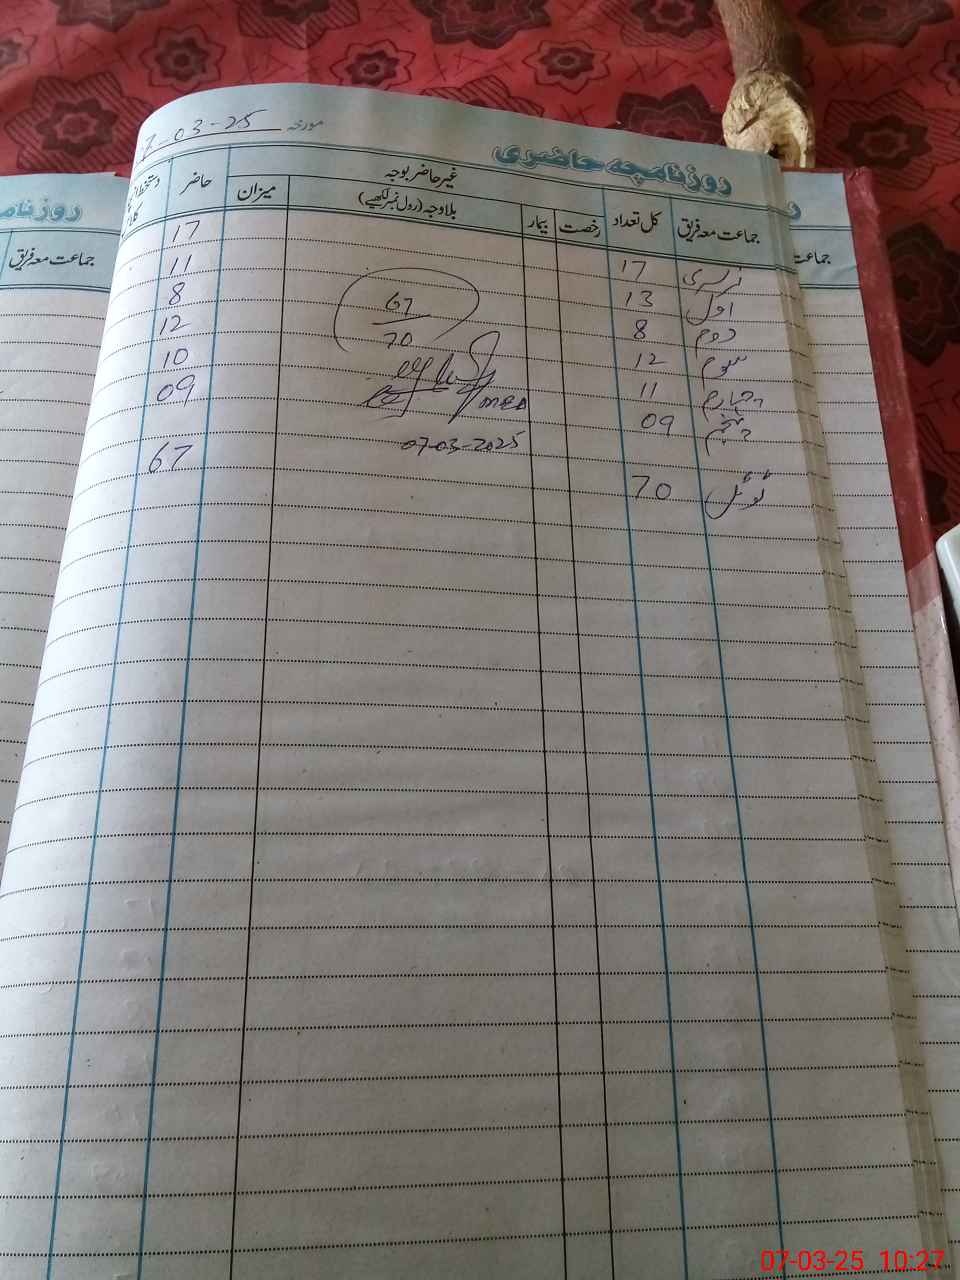 مورخہ 7-03-25
روزنامچہ حاضری
جماعت معہ فریق کل تعداد غیر حاضر بوجہ حاضر
رخصت بیمار بلاوجہ (رول نمبر لکھیے) میزان
نرسری 17 17
اول 13 11
دوم 8 8
سوم 12 12
چہارم 11 10
پنجم 09 09
ٹوٹل 70 67
67
70
07-03-2025
روزنام
جماعت معہ فریق
جماعت
07-03-25 10:27